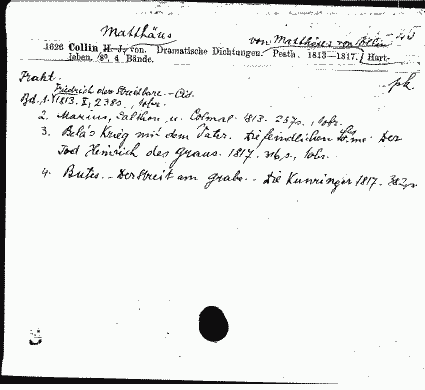 Matthäus
von Matthäus von Collin
1626 Collin H. J. von. Dramatische Dichtungen. Pesth. 1813—1817. Hart-
leben. 8º. 4 Bände.
Prakt.
pk.
Friedrich der Streitbare. - Cid.
Bd. 1. 1813. I, 238 s., 
2. Marius, Calthon, u. Colmal 1813. 257 s.
3. Bela's Krieg mit dem Vater. Die feindlichen Söhne. Der
Tod Heinrich des Graus. 1817. 316 s.,
4. Butes. - Der Streit am grabe. - Die Kunringer 1817. 382 s.